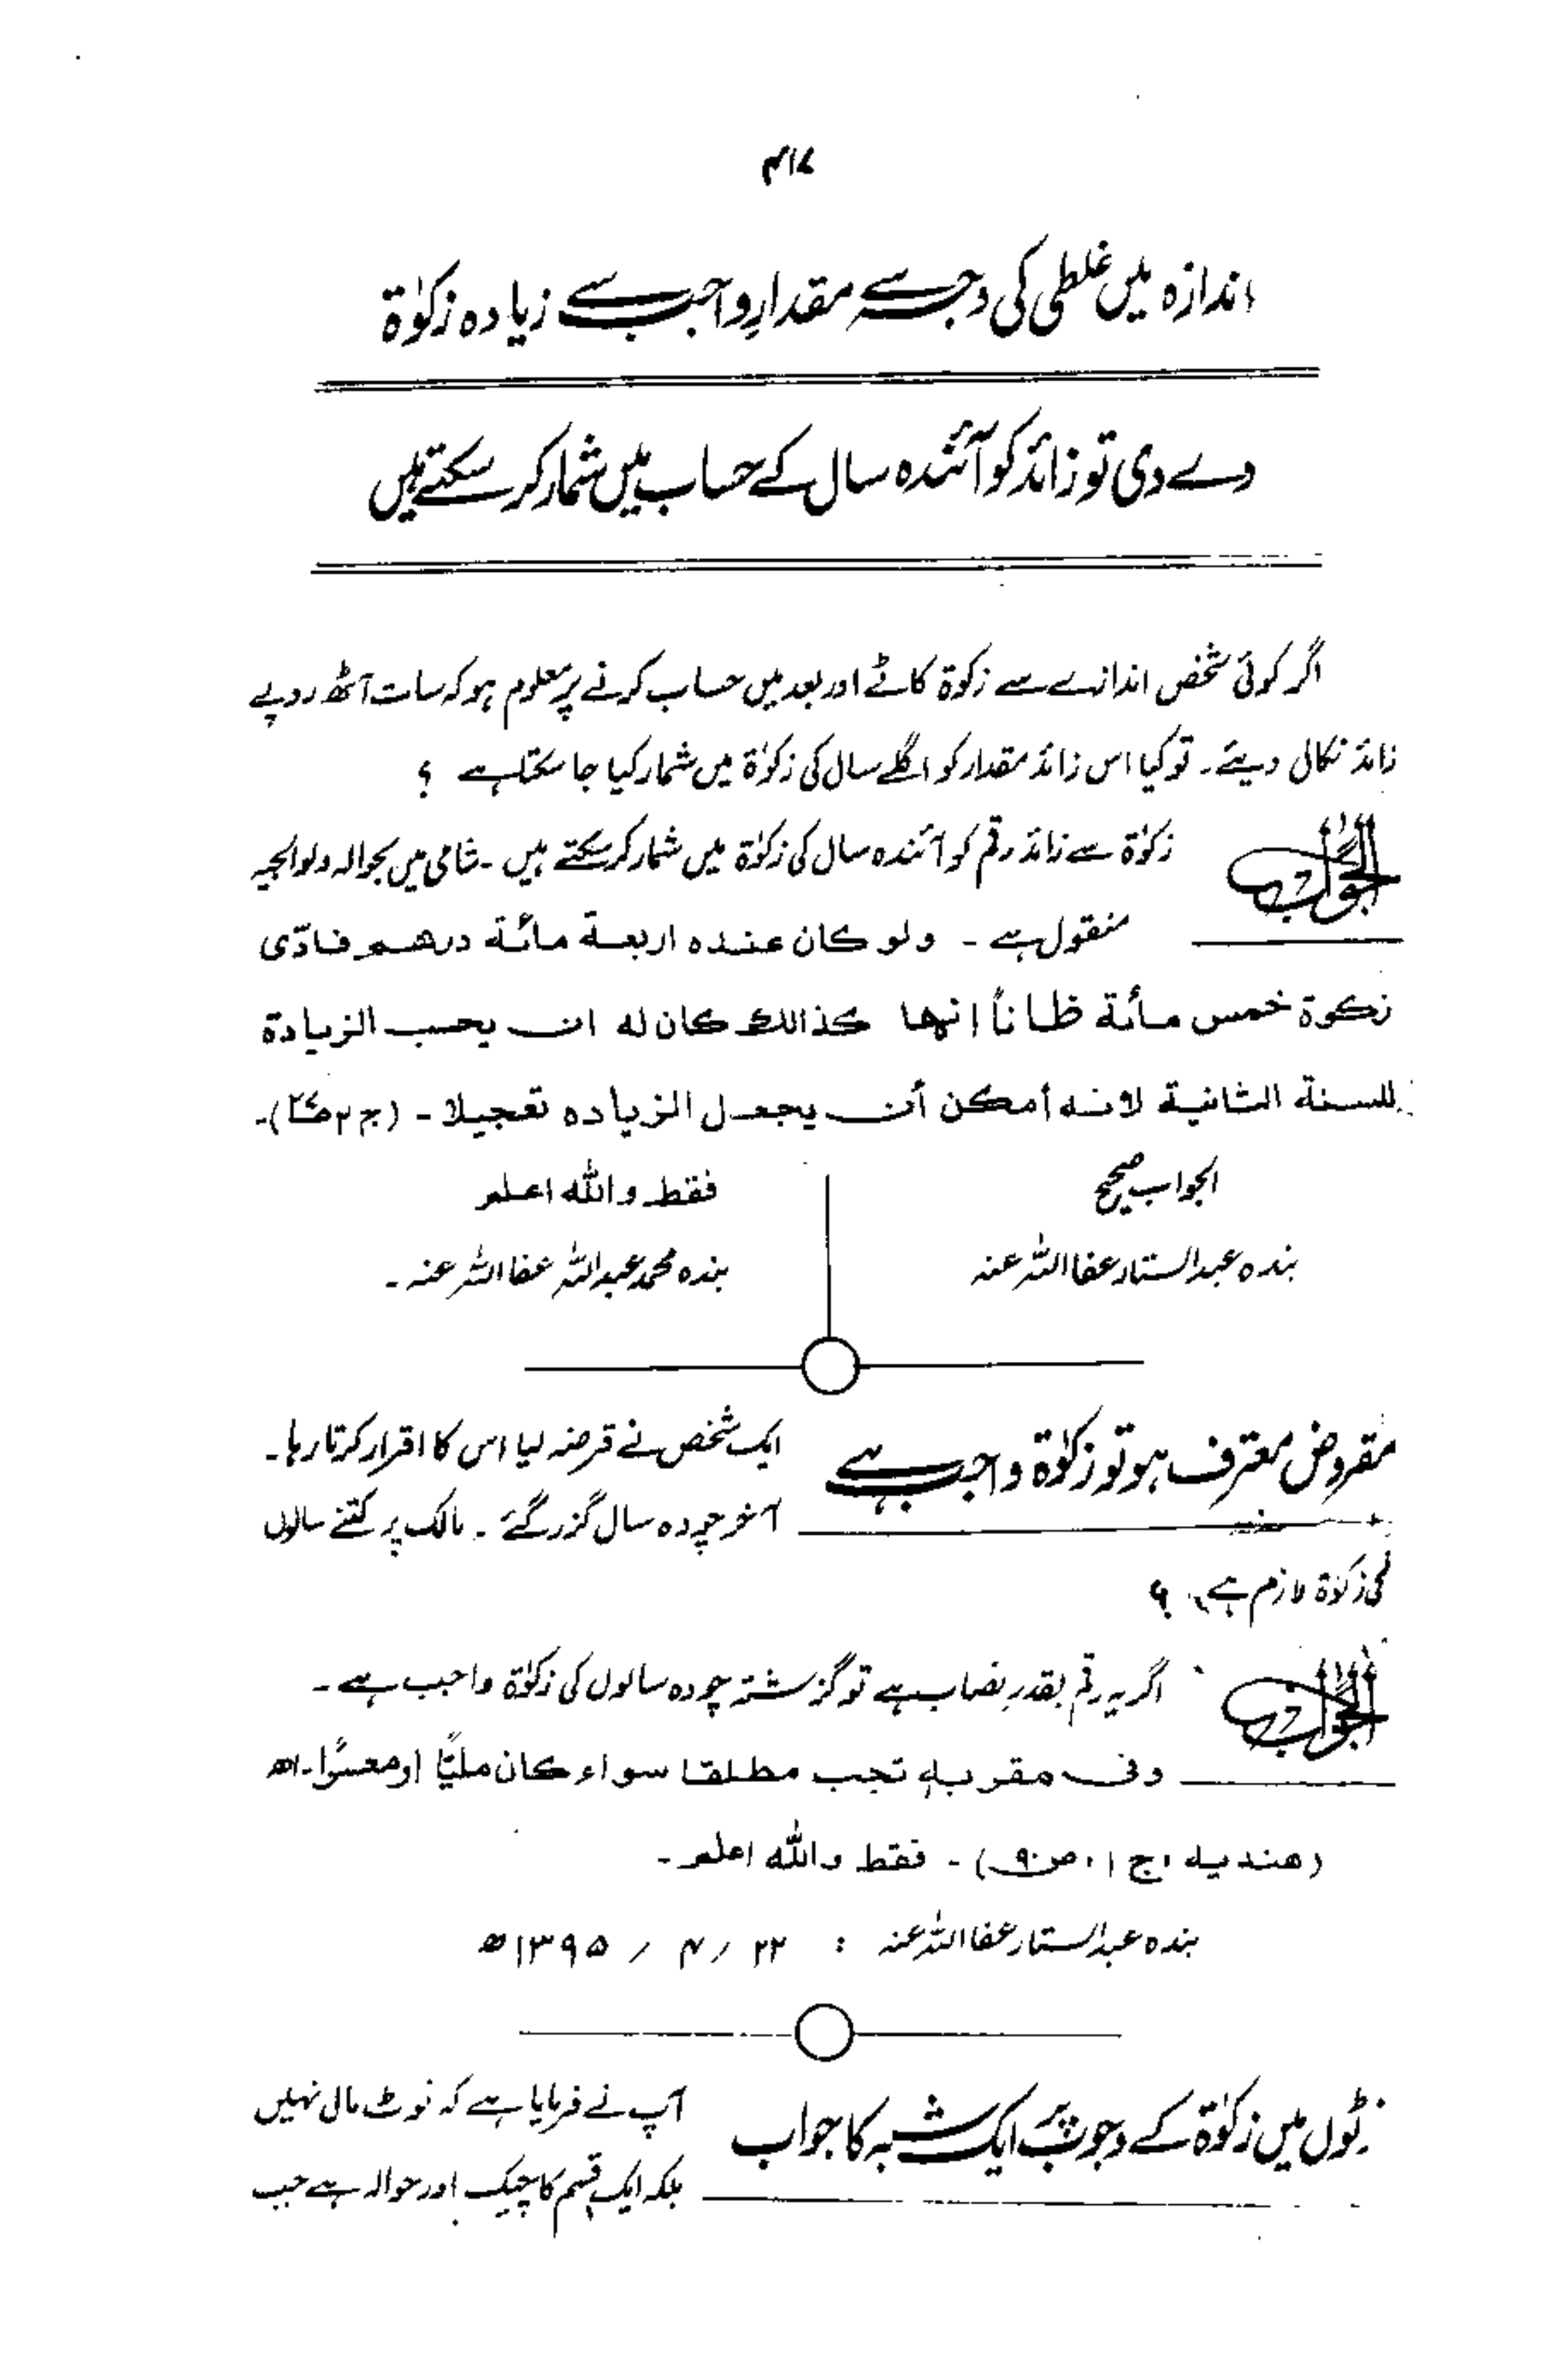 ۴۱۷
اندازہ میں غلطی کی وجہ سے مقدارِ واجب سے زیادہ زکوٰۃ
دے دی تو زائد کو آئندہ سال کے حساب میں شمار کر سکتے ہیں
اگر کوئی شخص اندازے سے زکوۃ کاٹے اور بعد میں حساب کرنے پر معلوم ہو کہ سات آٹھ روپے
زائد نکال دیئے۔ تو کیا اس زائد مقدار کو اگلے سال کی زکوٰۃ میں شمار کیا جا سکتا ہے ؟
الجواب زکوٰۃ سے زائد رقم کو آئندہ سال کی زکوٰۃ میں شمار کر سکتے ہیں ۔ شامی میں بحوالہ ولوالجیہ
منقول ہے ۔ ولو کان عندہ اربعۃ مائۃ درھم فادّی
زکوۃ خمس مائۃ ظاناً انھا کذالک کان لہ ان یحسب الزیادۃ
للسنۃ الثانیۃ لانہ أمکن أن یجعل الزیادہ تعجیلا ۔ (ج ۲
الجواب صحیح
بندہ عبدالستار عفا اللہ عنہ
فقط واللہ اعلم
بندہ محمد عبداللہ عفا اللہ عنہ ۔
مقروض معترف ہو تو زکوٰۃ واجب ہے
ایک شخص نے قرضہ لیا اس کا اقرار کرتا رہا ۔
آخر چودہ سال گزر گئے ۔ مالک پر کتنے سالوں
کی زکوٰۃ لازم ہے ؟
الجواب اگر یہ رقم بقدرِ نصاب ہے تو گزشتہ چودہ سالوں کی زکوٰۃ واجب ہے ۔
وفی مقر بہ تجب مطلقا سواء کان ملیًا او معسرًا ۔ اھ
(ھندیہ ، ج ۱ ، ص ۹۰) ۔ فقط واللہ اعلم ۔
بندہ عبدالستار عفا اللہ عنہ : ۲۲ / ۴ / ۱۳۹۵ھ
نوٹوں میں زکوٰۃ کے وجوب پر ایک شبہ کا جواب
آپ نے فرمایا ہے کہ نوٹ مال نہیں
بلکہ ایک قسم کا چیک اور حوالہ ہے جب